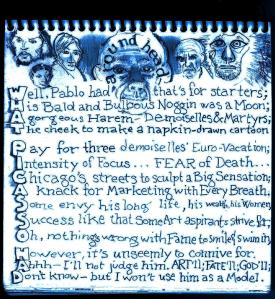 a round head
Well, Pablo had that's for starters;
His Bald and Bulbous Noggin was a Moon;
A gorgeous Harem-Demoiselles & Martyrs;
The cheek to make a napkin-drawn cartoon
Pay for three demoiselles' Euro-Vacation;
Intensity of Focus... FEAR of Death...
Chicago's streets to sculpt a Big Sensation;
A knack for Marketing with Every Breath.
Some envy his long life, his wealth, his Women,
Success like that Some Art aspirants strive for;
Oh, nothing's wrong with Fame to smile/swim in,
However, it's unseemly to connive for.
Ahhh—I'll not judge him. ART'll; FATE'll; GOD'll;
Don't know—but I won't use him as a Model.